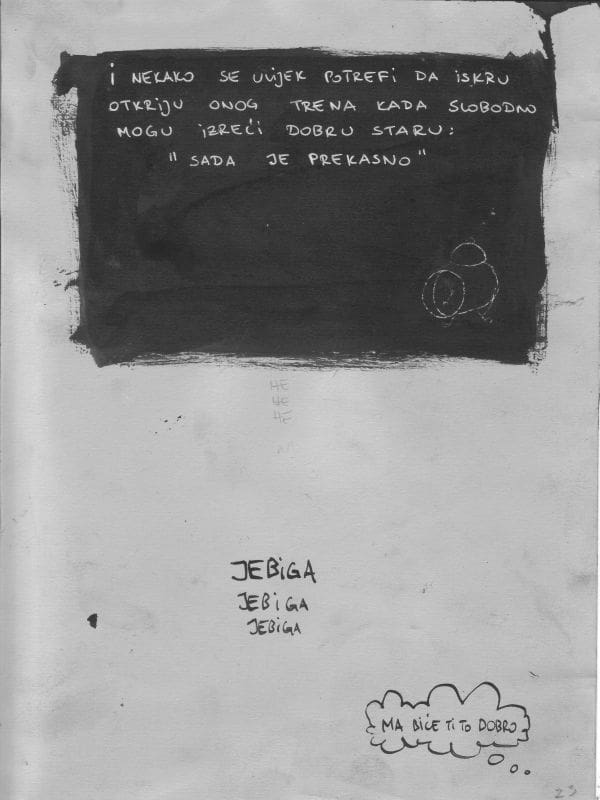 i NEKAKO SE UVIJEK POTREFI DA iSKRU
OTKRiJU ONOG TRENA KADA SLOBODNO
MOGU iZREĆi DOBRU STARU:
"SADA JE PREKASNO"
HE
HE
HE
JEBiGA
JEBiGA
JEBiGA
MA BIĆE TI TO DOBRO
23